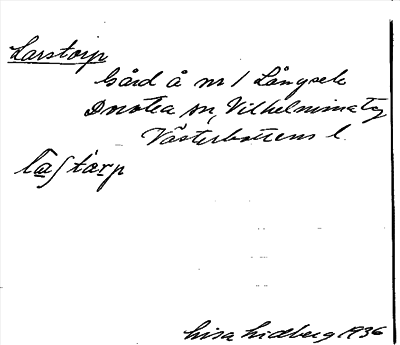 Larstorp
Gård å nr 1 Långsele
Dorotea sn, Vilhelmina tg
Västerbottens l.
Lisa Lidberg 1936